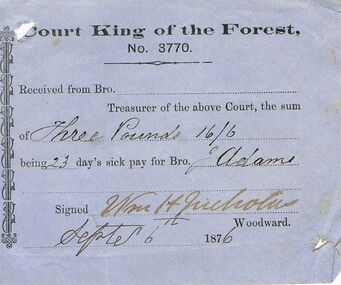 Court King of the Forest,
No. 3770.
Received from Bro.
Treasurer of the above Court, the sum
of Three Pounds 16/6
being 23 day's sick pay for Bro. J Adams
Signed Wm H Nicholas
Woodward.
Septr 6th 1876